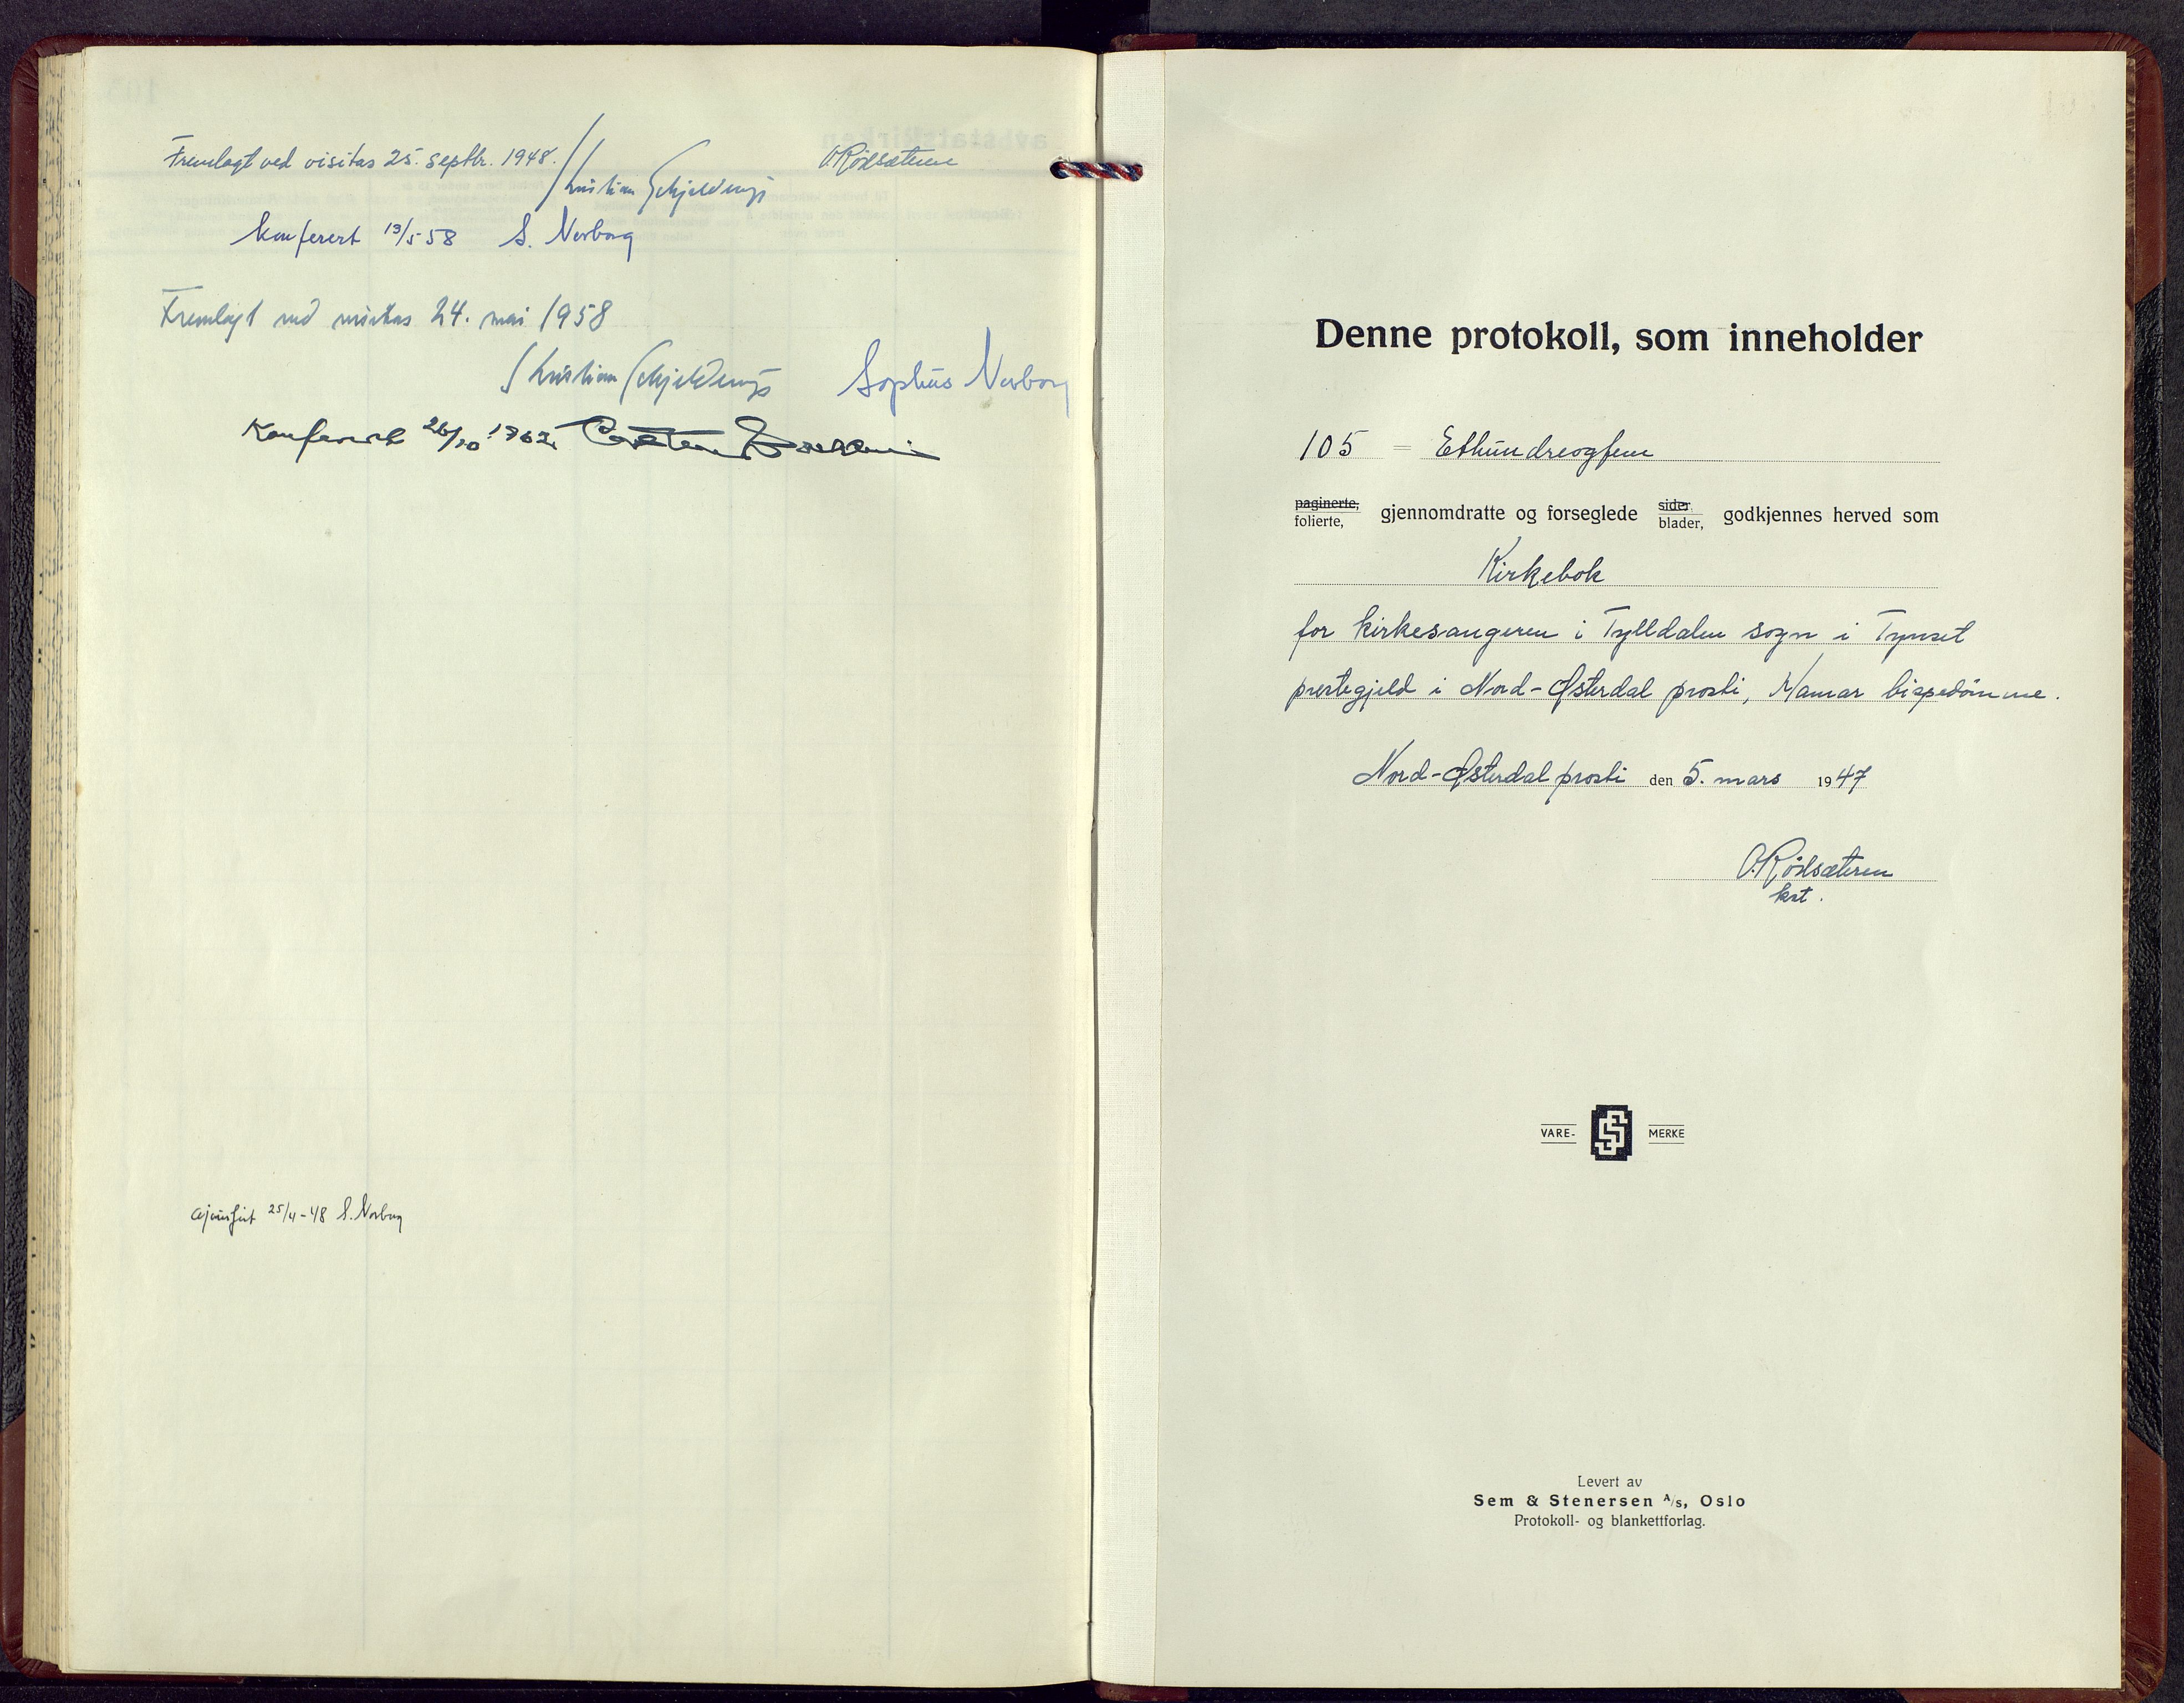 Fremlagt ved visitas 25. septbr. 1948. O. Rødsæteren
Kristian Schjelderup
Konferert 13/5 58 S. Norborg
Fremlagt ved visitas 24. mai 1958
Kristian Schjelderup Sophus Norborg
Konferert 26/10 1962
ajourført 25/4-48 S. Norborg
Denne protokoll, som inneholder
105 = Ethundreogfem
paginerte, folierte, gjennomdratte og forseglede sider, blader, godkjennes herved som
Kirkebok
for kirkesangeren i Tylldalen sogn i Tynset
prestegjeld i Nord-Østerdal prosti, Hamar bispedømme.
Nord-Østerdal prosti den 5. mars 1947
O. Rødsæteren
kst.
VARE- MERKE
Levert av
Sem & Stenersen A/S, Oslo
Protokoll- og blankettforlag.